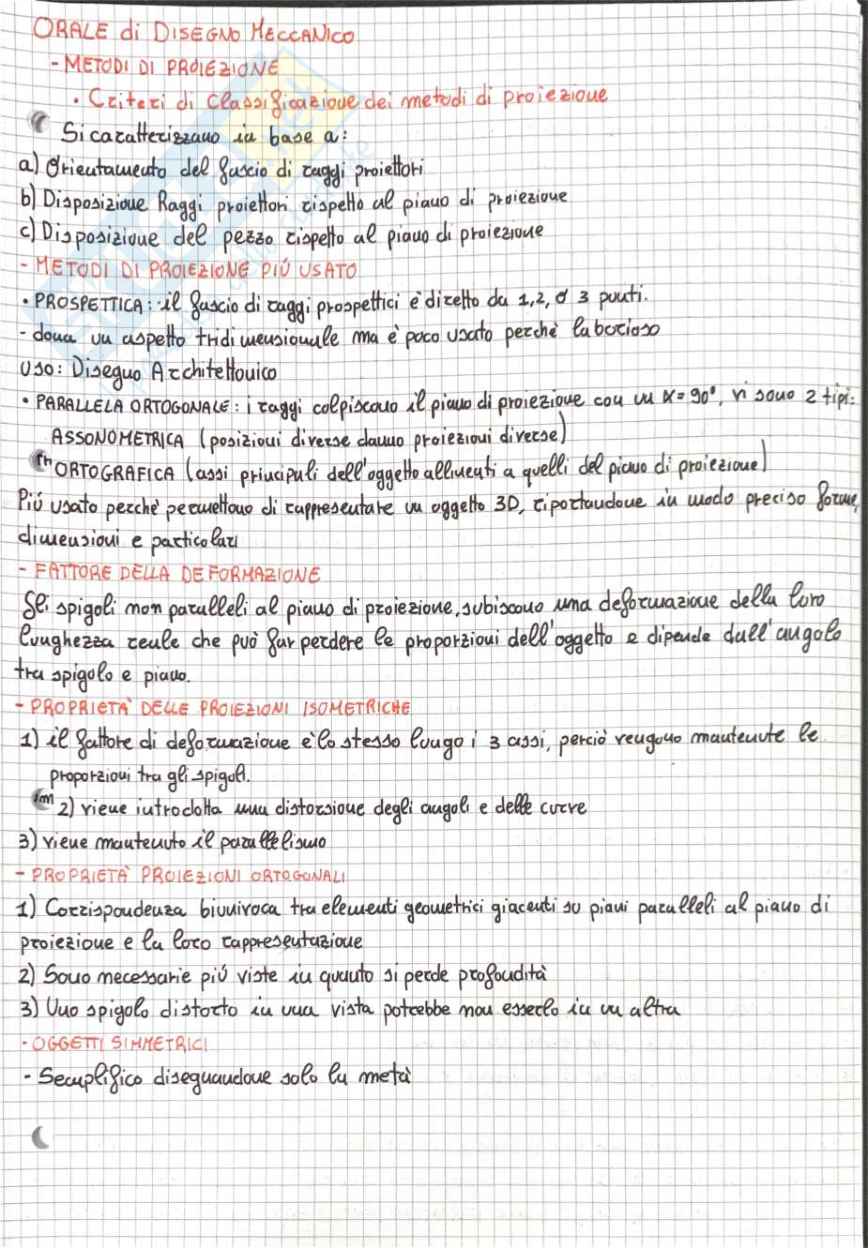 ORALE di DISEGNO MECCANICO
- METODI DI PROIEZIONE
• Criteri di classificazione dei metodi di proiezione
Si caratterizzano in base a:
a) Orientamento del fascio di raggi proiettori
b) Disposizione Raggi proiettori rispetto al piano di proiezione
c) Disposizione del pezzo rispetto al piano di proiezione
- METODI DI PROIEZIONE PIÚ USATO
• PROSPETTICA: il fascio di raggi prospettici è diretto da 1,2, o 3 punti.
- dona un aspetto tridimensionale ma è poco usato perchè laborioso
USO: Disegno Architettonico
• PARALLELA ORTOGONALE: i raggi colpiscono il piano di proiezione con un α = 90°, vi sono 2 tipi:
ASSONOMETRICA (posizioni diverse danno proiezioni diverse)
ORTOGRAFICA (assi principali dell'oggetto allineati a quelli del piano di proiezione)
Piú usato perchè permettono di rappresentare un oggetto 3D, riportandone in modo preciso forme,
dimensioni e particolari
- FATTORE DELLA DEFORMAZIONE
Gli spigoli non paralleli al piano di proiezione, subiscono una deformazione della loro
lunghezza reale che può far perdere le proporzioni dell'oggetto e dipende dall'angolo
tra spigolo e piano.
- PROPRIETA' DELLE PROIEZIONI ISOMETRICHE
1) il fattore di deformazione è lo stesso lungo i 3 assi, perciò vengono mantenute le
proporzioni tra gli spigoli.
2) viene introdotta una distorsione degli angoli e delle curve
3) viene mantenuto il parallelismo
- PROPRIETÀ PROIEZIONI ORTOGONALI
1) Corrispondenza biunivoca tra elementi geometrici giacenti su piani paralleli al piano di
proiezione e la loro rappresentazione
2) Sono necessarie piú viste in quanto si perde profondità
3) Uno spigolo distorto in una vista potrebbe non esserlo in un altra
- OGGETTI SIMMETRICI
- Semplifico disegnandone solo la metà